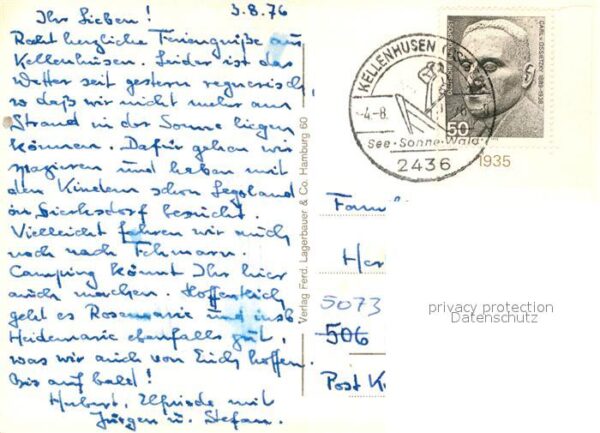 Ihr Lieben! 3.8.76
Recht herzliche Feriengrüße aus
Kellenhusen. Leider ist das
Wetter seit gestern regnerisch,
so daß wir nicht mehr am
Strand in der Sonne liegen
können. Dafür gehen wir
spazieren und haben mit
den Kindern schon Legoland
in Sierksdorf besucht.
Vielleicht fahren wir auch
noch nach Fehmarn.
Camping könnt Ihr hier
auch machen. Hoffentlich
geht es Rosemarie und insb.
Heidemarie ebenfalls gut,
was wir auch von Euch hoffen.
Bis auf bald!
Hubert, Elfriede mit
Jürgen u. Stefan.
Verlag Ferd. Lagerbauer & Co. Hamburg 60
KELLENHUSEN
-4.-8.
See·Sonne·Wald
2436
CARL v. OSSIETZKY 1889-1938
50
1935
Fam
Her
5073
506
Post K
privacy protection
Datenschutz